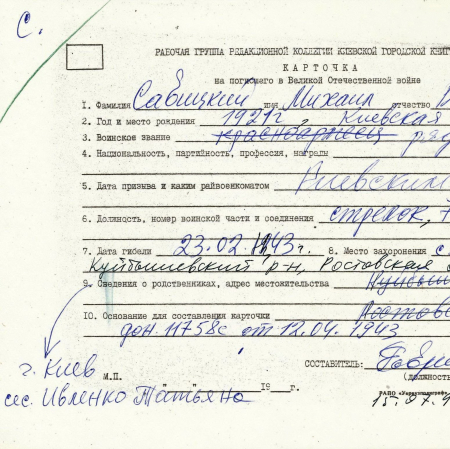 С.
РАБОЧАЯ ГРУППА РЕДАКЦИОННОЙ КОЛЛЕГИИ КИЕВСКОЙ ГОРОДСКОЙ КНИГ
КАРТОЧКА
на погибшего в Великой Отечественной войне
1. Фамилия Савицкий имя Михаил отчество
2. Год и место рождения 1921г, Киевская
3. Воинское звание красноармеец ряд
4. Национальность, партийность, профессия, награды
5. Дата призыва и каким райвоенкоматом Киевским
6. Должность, номер воинской части и соединения стрелок,
7. Дата гибели 23.02.1943г. 8. Место захоронения с
Куйбышевский р-н, Ростовская
9. Сведения о родственниках, адрес местожительства
10. Основание для составления карточки
дон. 11758с от 12.04.1943
СОСТАВИТЕЛЬ:
(должность
г. Киев
М.П. " " 19 г.
сес. Ивленко Татьяна
РАПО «Укрвузполиграф».